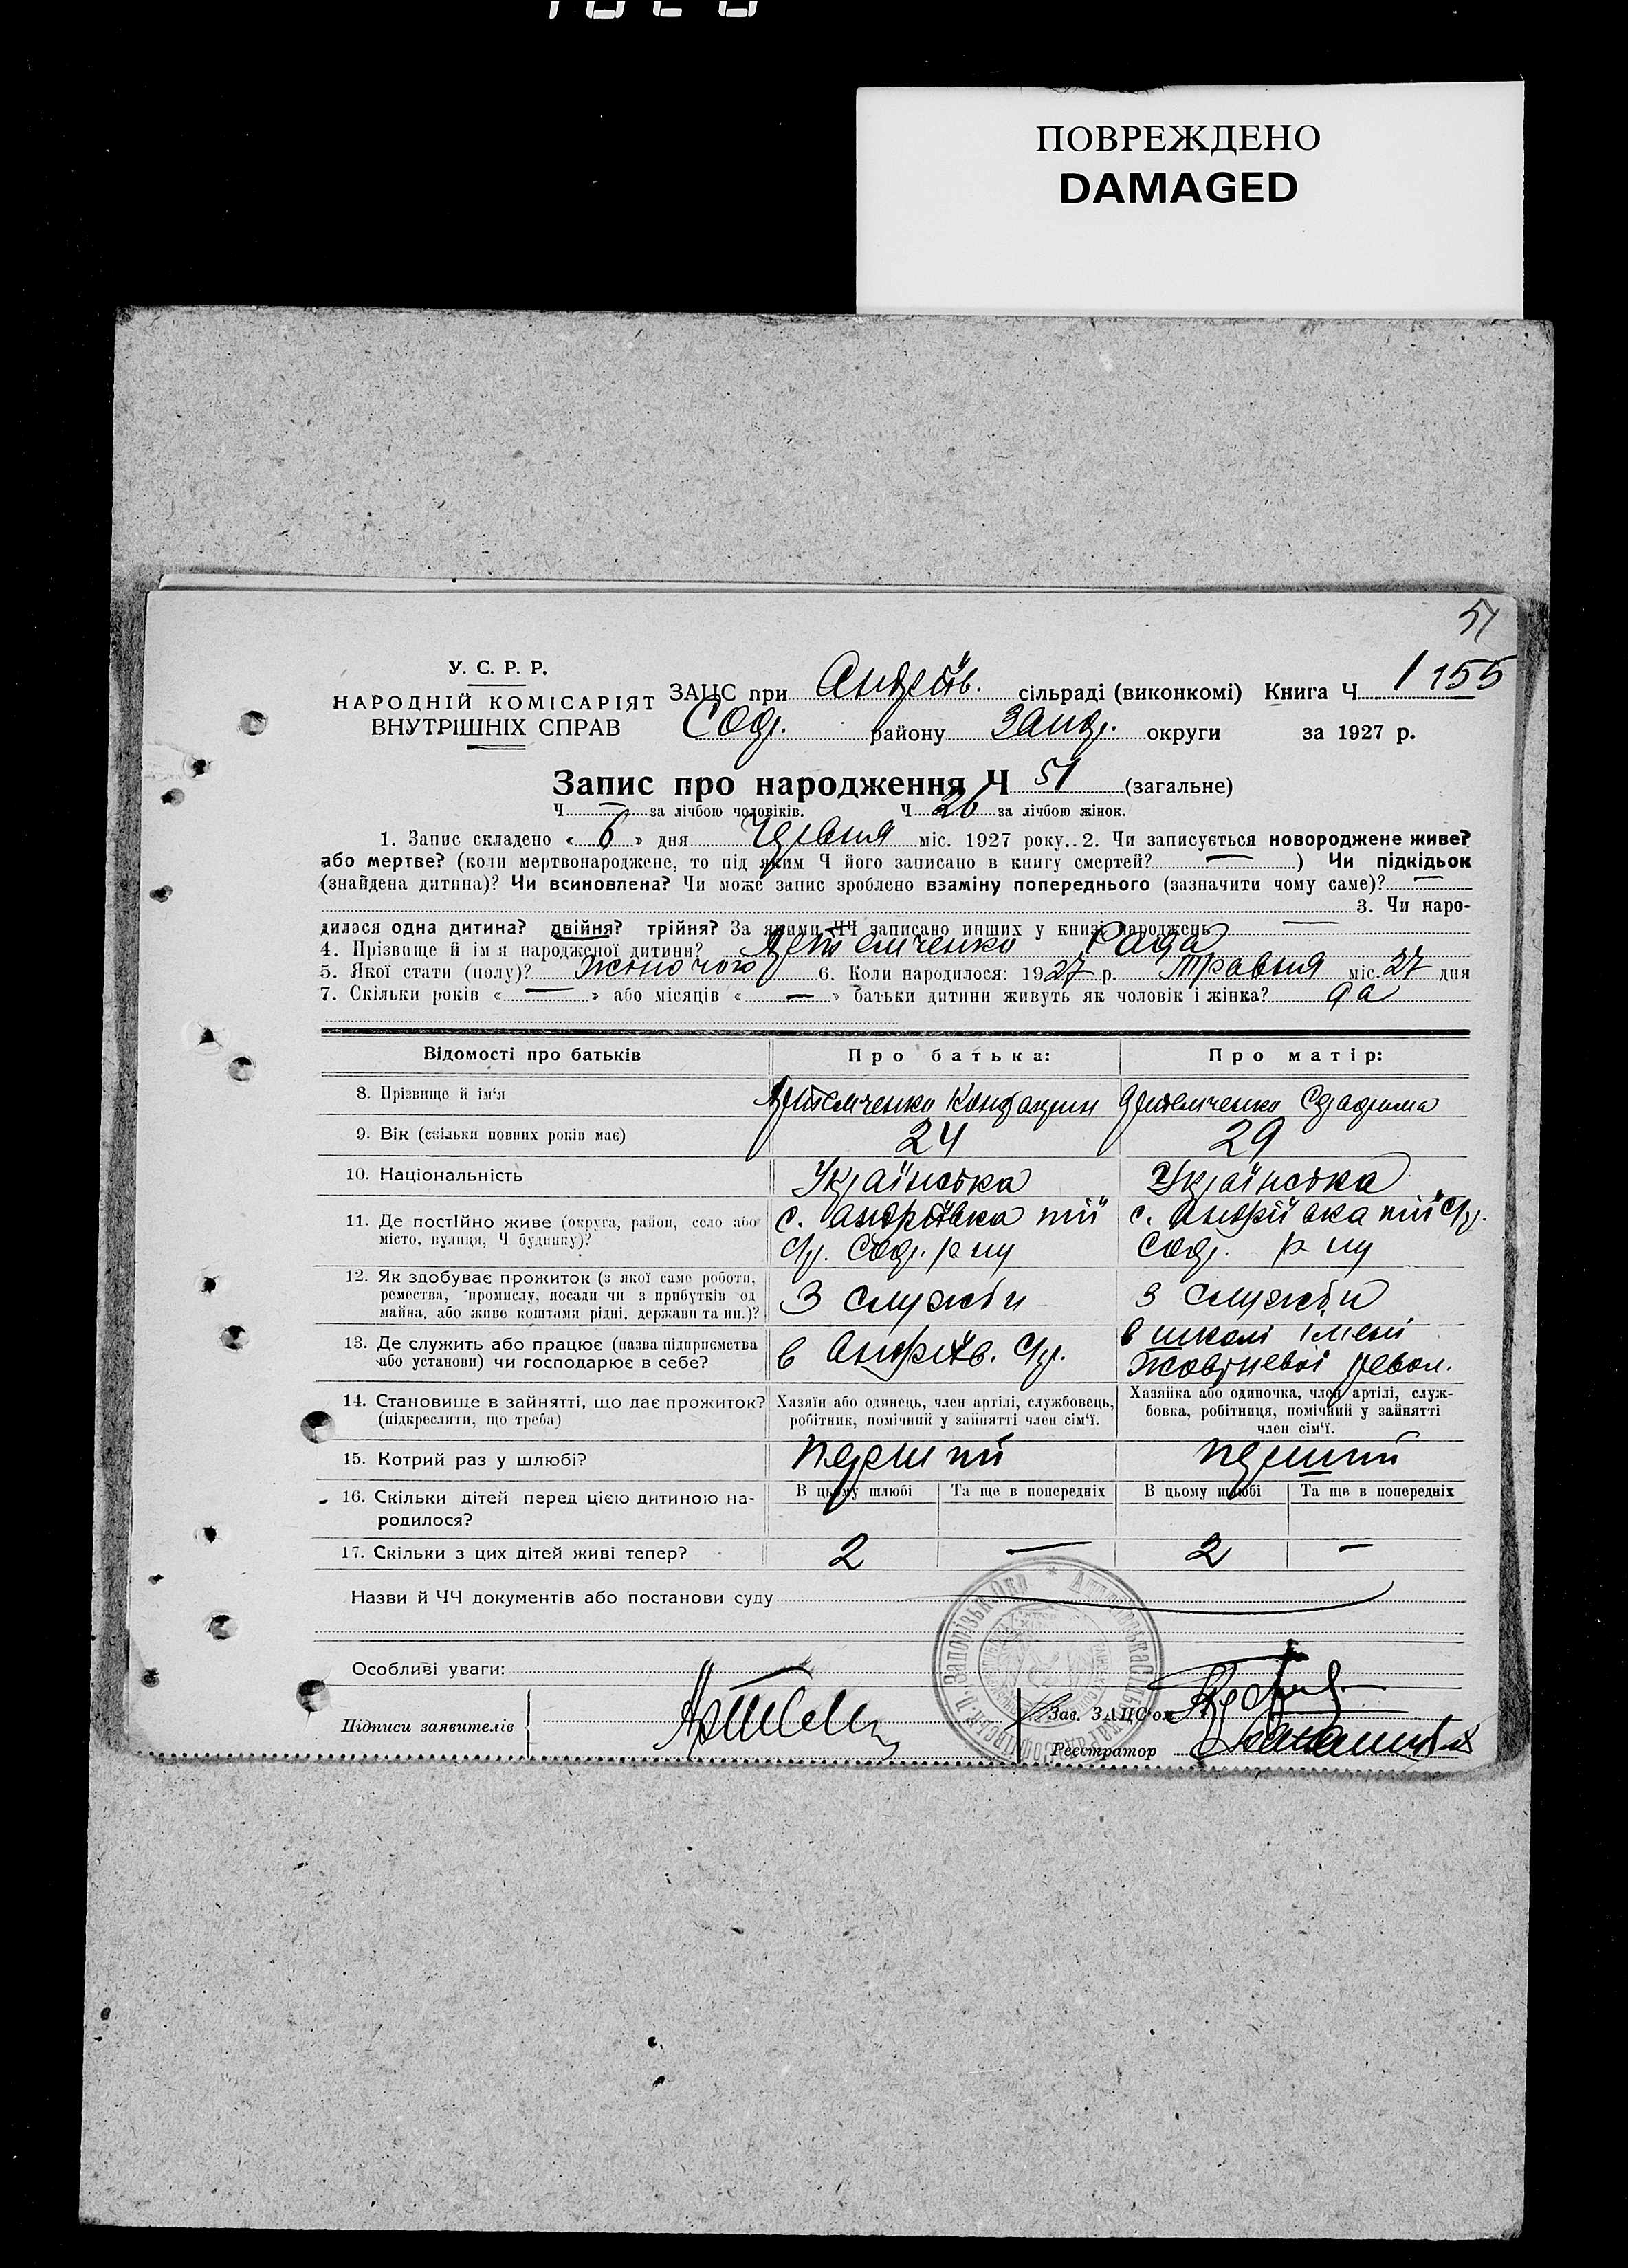 ПОВРЕЖДЕНО
DAMAGED
51
У. С. Р. Р.
НАРОДНІЙ КОМІСАРІЯТ
ВНУТРІШНІХ СПРАВ
ЗАЦС при Андріїв. сільраді (виконкомі) Книга Ч 1 155
Соф. району Запор. округи за 1927 р.
Запис про народження Ч 51 (загальне)
Ч — за лічбою чоловіків. Ч 26 за лічбою жінок.
1. Запис складено « 6 » дня Червня міс. 1927 року.. 2. Чи записується новороджене живе?
або мертве? (коли мертвонароджене, то під яким Ч його записано в книгу смертей? — ) Чи підкідьок
(знайдена дитина)? Чи всиновлена? Чи може запис зроблено взаміну попереднього (зазначити чому саме)? —
3. Чи наро-
дилася одна дитина? двійня? трійня? За якими ЧЧ записано инших у книзі народжень —
4. Прізвище й ім'я народженої дитини? Артемченко Рада
5. Якої стати (полу)? жіночого 6. Коли народилося: 1927 р. травня міс. 27 дня
7. Скільки років « — » або місяців « — » батьки дитини живуть як чоловік і жінка? да
Відомості про батьків Про батька: Про матір:
8. Прізвище й ім'я Артемченко Артемченко
9. Вік (скільки повних років має) 24 29
10. Національність Українська Українська
11. Де постійно живе (округа, район, село або с. Андріївка тії с. Андріївка тії С/р.
місто, вулиця, Ч будинку)? С/р. Соф. р ну Соф. р ну
12. Як здобуває прожиток (з якої саме роботи,
ремества, промислу, посади чи з прибутків од З служби З служби
майна, або живе коштами рідні, держави та ин.)?
13. Де служить або працює (назва підприємства в школі імені
або установи) чи господарює в себе? в Андріїв. С/р. Жовтневої револ.
14. Становище в зайнятті, що дає прожиток? Хазяїн або одинець, член артілі, службовець, Хазяйка або одиночка, член артілі, служ-
(підкреслити, що треба) робітник, помічний у зайнятті член сім'ї. бовка, робітниця, помічний у зайнятті
член сім'ї.
15. Котрий раз у шлюбі? перший перший
16. Скільки дітей перед цією дитиною на- В цьому шлюбі Та ще в попередніх В цьому шлюбі Та ще в попередніх
родилося?
17. Скільки з цих дітей живі тепер? 2 — 2 —
Назви й ЧЧ документів або постанови суду
Особливі уваги:
Підписи заявителів Зав. ЗАЦС'ом
Реєстратор